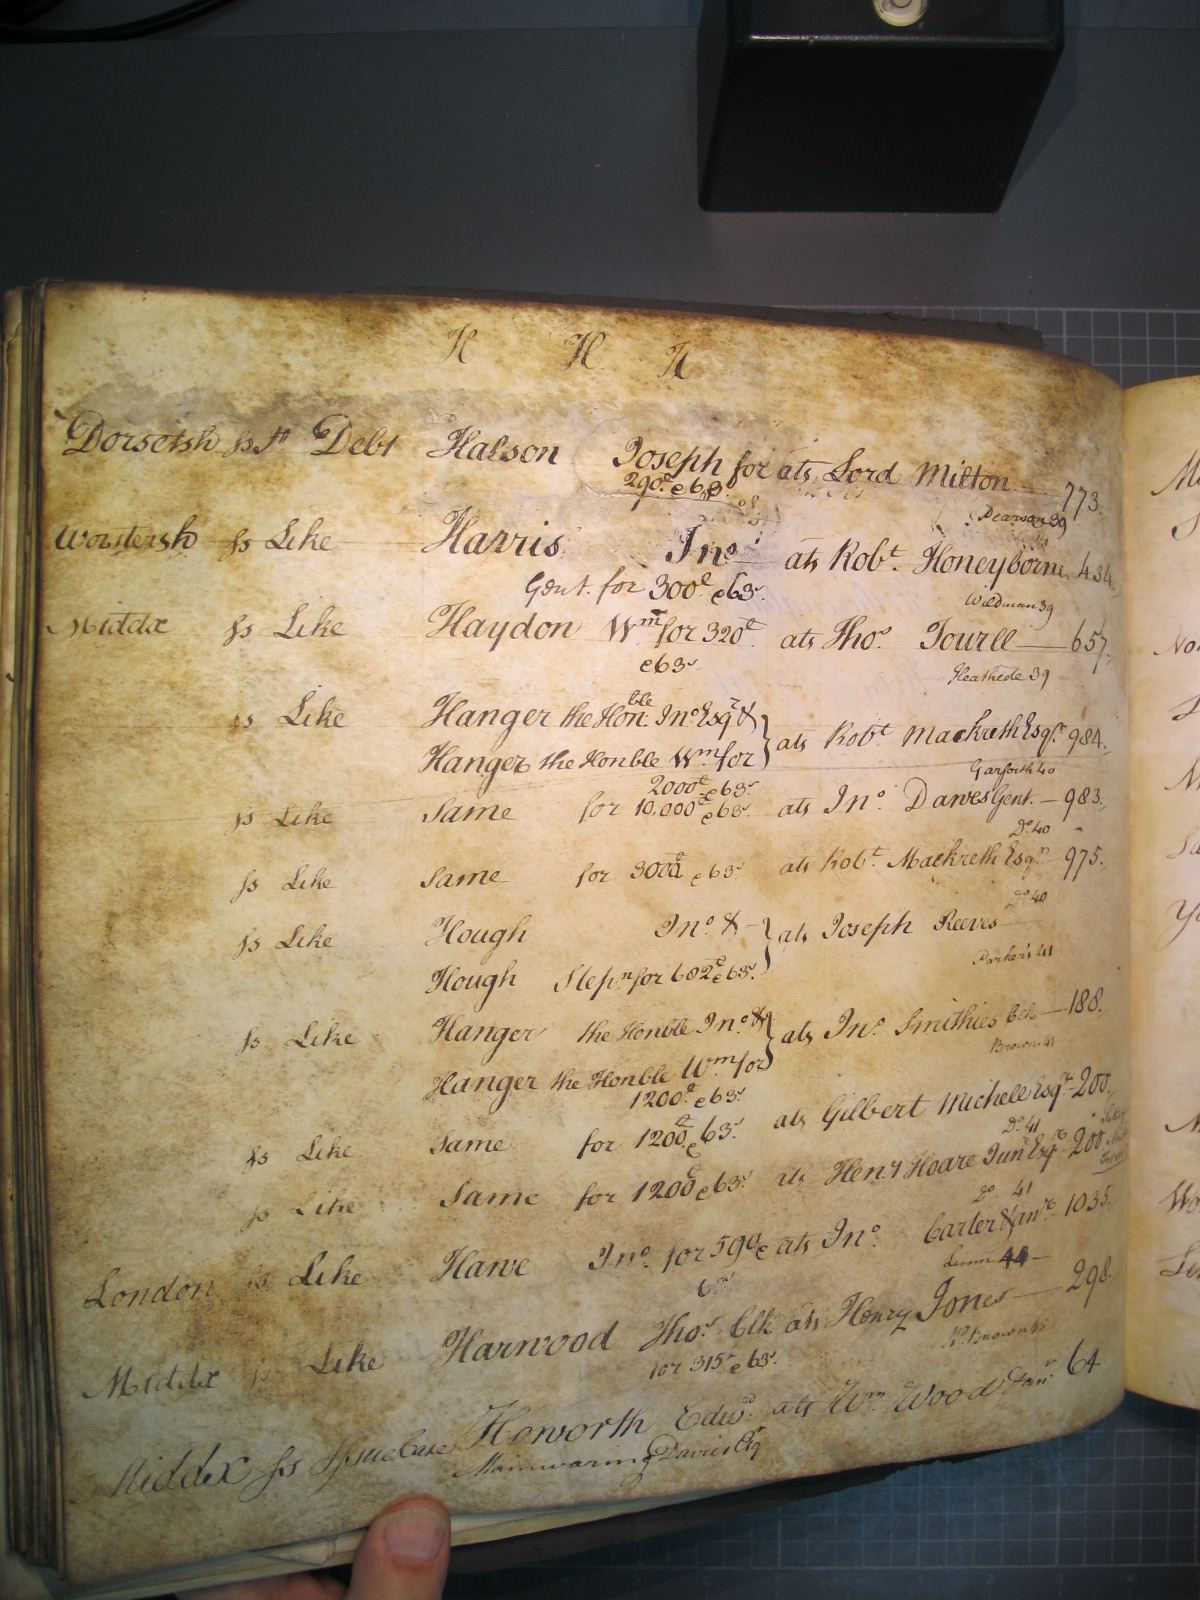 H H H
Dorsetsh ss Debt Halson Joseph for ats Lord Milton 773.
290£ e63s
Pearson 39
Worstersh ss Like Harris Jno ats Robt Honeyborne 434
Gent. for 300£ e63s
Wildman 39
Middx ss Like Haydon Wm for 320£ ats Thos Tourll 657.
e63s
Heathcote 39
ss Like Hanger the Honble Jno Esqr &
Hanger the Honble Wm for } ats Robt Mackreth Esqr 984.
2000£ e63s
Garforth 40
ss Like Same for 10,000£ e63s ats Jno Dawes Gent. 983.
Do 40
ss Like Same for 3000£ e63s ats Robt Mackreth Esqr 975.
Do 40
ss Like Hough Jno & } ats Joseph Reeves
Hough Stepn for 602£ e63s
Parker's 41
ss Like Hanger the Honble Jno & } ats Jno Smithies Clk 188.
Brown 41
Hanger the Honble Wm for
1200£ e63s
ss Like Same for 1200£ e63s ats Gilbert Michell Esqr 200.
Do 41
ss Like Same for 1200£ e63s ats Henry Hoare Junr Esqr 200
Do 41
London ss Like Hawe Jno for 590£ e ats Jno Carter & anr 1035.
63s
Lunn 44
Middx ss Like Harwood Thos Clk ats Henry Jones 298.
for 315£ e63s
Wm Brown 45
Middx ss Issue Case Howorth Edwd ats Wm Wood 64
Mainwaring Davies Esq